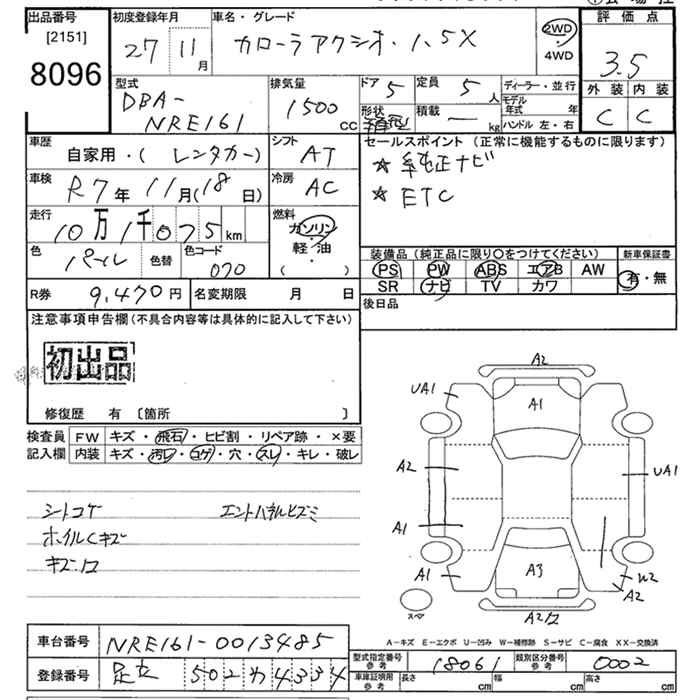 出品番号
[2151]
8096
初度登録年月
27 11月
車名・グレード
カローラアクシオ・1.5X
2WD
・
4WD
評価点
3.5
外装 内装
C C
型式
DBA-
NRE161
排気量
1500
CC
ドア
5
形状
定員
5
人
積載
ー
kg
ディーラー・並行
モデル
年式 年
ハンドル 左・右
車歴
自家用・( レンタカー )
シフト
AT
車検
R7年 11月(18日)
冷房
AC
走行
10万1千075km
燃料
ガソリン
・
軽・油
( )
色
パール
色替
色コード
070
R券
9,470円
名変期限 月 日
セールスポイント (正常に機能するものに限ります)
★純正ナビ
★ETC
装備品 (純正品に限り〇をつけてください)
PS PW ABS エアB AW
SR ナビ TV カワ
新車保証書
有・無
後日品
注意事項申告欄(不具合内容等は具体的に記入して下さい)
初出品
修復歴 有 〔箇所 〕
検査員
記入欄
FW キズ・飛石・ヒビ割・リペア跡・×要
内装 キズ・汚レ・コゲ・穴・スレ・キレ・破レ
シートコゲ
エンドパネルヒズミ
ホイルCキズ
A2
UA1
A1
A2
UA1
A1
A1
A3
W2
A2
A2
スペア
A-キズ E-エクボ U-凹み W-補修跡 S-サビ C-腐食 XX-交換済
車台番号
NRE161-0013485
登録番号
足立 502 わ 4334
型式指定番号
参考
18061
類別区分番号
参考
0002
車庫証明用
参考
長さ cm
幅 cm
高さ cm